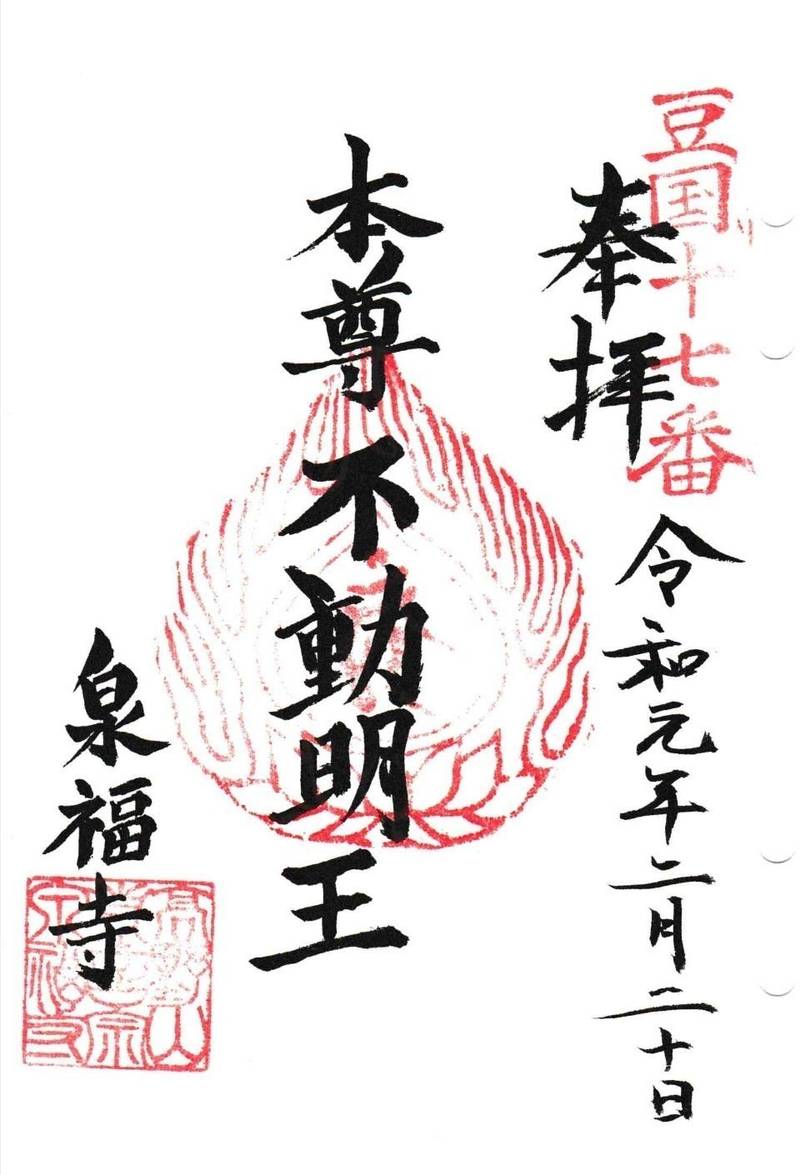 豆国十七番
奉拝
令和元年二月二十日
本尊不動明王
泉福寺